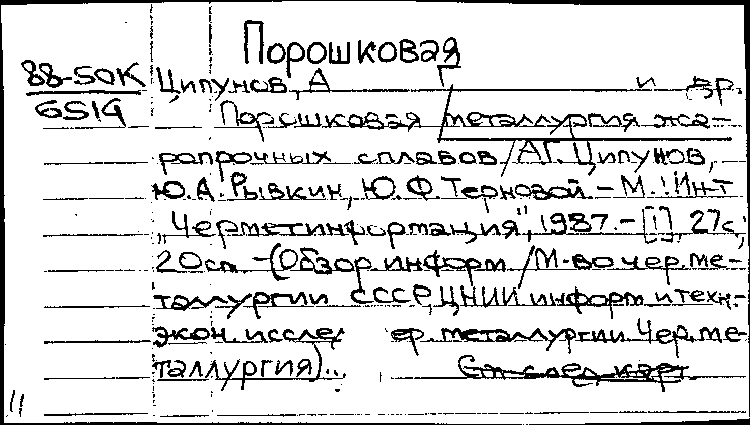 Порошковая
88-50К Ципунов, А Г и др.
6519 Порошковая / металлургия жа-
ропрочных сплавов / А.Г. Ципунов,
Ю.А. Рывкин, Ю.Ф. Терновой. – М. : Ин-т
„Черметинформация", 1987. – [1], 27 с.;
20 см. – (Обзор. информ / М-во чер. ме-
таллургии СССР, ЦНИИ информ. и техн.-
экон. исслед ер. металлургии. Чер. ме-
таллургия)...
См. след. карт.
11